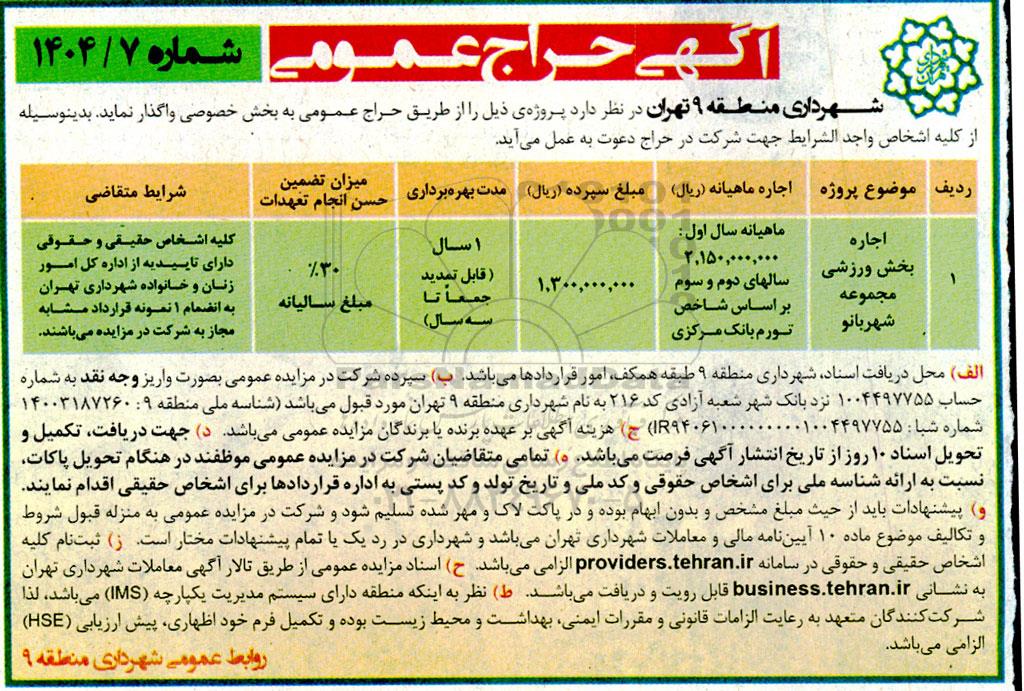 آگهی حراج عمومی
شماره ۷ / ۱۴۰۴
شهرداری منطقه ۹ تهران در نظر دارد پروژه‌ی ذیل را از طریق حراج عمومی به بخش خصوصی واگذار نماید. بدینوسیله
از کلیه اشخاص واجد الشرایط جهت شرکت در حراج دعوت به عمل می‌آید.
ردیف
موضوع پروژه
اجاره ماهیانه (ریال)
مبلغ سپرده (ریال)
مدت بهره‌برداری
میزان تضمین
حسن انجام تعهدات
شرایط متقاضی
۱
اجاره
بخش ورزشی
مجموعه
شهربانو
ماهیانه سال اول:
۲,۱۵۰,۰۰۰,۰۰۰
سالهای دوم و سوم
بر اساس شاخص
تورم بانک مرکزی
۱,۳۰۰,۰۰۰,۰۰۰
۱ سال
( قابل تمدید
جمعاً تا
سه سال)
۳۰٪
مبلغ سالیانه
کلیه اشخاص حقیقی و حقوقی
دارای تاییدیه از اداره کل امور
زنان و خانواده شهرداری تهران
به انضمام ۱ نمونه قرارداد مشابه
مجاز به شرکت در مزایده می‌باشند.
الف) محل دریافت اسناد، شهرداری منطقه ۹ طبقه همکف، امور قراردادها می‌باشد. ب) سپرده شرکت در مزایده عمومی بصورت واریز وجه نقد به شماره
حساب ۱۰۰۴۴۹۷۷۵۵ نزد بانک شهر شعبه آزادی کد ۲۱۶ به نام شهرداری منطقه ۹ تهران مورد قبول می‌باشد (شناسه ملی منطقه ۹ : ۱۴۰۰۳۱۸۷۲۶۰
شماره شبا : IR۹۴۰۶۱۰۰۰۰۰۰۰۰۱۰۰۴۴۹۷۷۵۵) ج) هزینه آگهی بر عهده برنده یا برندگان مزایده عمومی می‌باشد. د) جهت دریافت، تکمیل و
تحویل اسناد ۱۰ روز از تاریخ انتشار آگهی فرصت می‌باشد. ه) تمامی متقاضیان شرکت در مزایده عمومی موظفند در هنگام تحویل پاکات،
نسبت به ارائه شناسه ملی برای اشخاص حقوقی و کد ملی و تاریخ تولد و کد پستی به اداره قراردادها برای اشخاص حقیقی اقدام نمایند.
و) پیشنهادات باید از حیث مبلغ مشخص و بدون ابهام بوده و در پاکت لاک و مهر شده تسلیم شود و شرکت در مزایده عمومی به منزله قبول شروط
و تکالیف موضوع ماده ۱۰ آیین‌نامه مالی و معاملات شهرداری تهران می‌باشد و شهرداری در رد یک یا تمام پیشنهادات مختار است. ز) ثبت‌نام کلیه
اشخاص حقیقی و حقوقی در سامانه providers.tehran.ir الزامی می‌باشد. ح) اسناد مزایده عمومی از طریق تالار آگهی معاملات شهرداری تهران
به نشانی business.tehran.ir قابل رویت و دریافت می‌باشد. ط) نظر به اینکه منطقه دارای سیستم مدیریت یکپارچه (IMS) می‌باشد، لذا
شرکت‌کنندگان متعهد به رعایت الزامات قانونی و مقررات ایمنی، بهداشت و محیط زیست بوده و تکمیل فرم خود اظهاری، پیش ارزیابی (HSE)
الزامی می‌باشد.
روابط عمومی شهرداری منطقه ۹